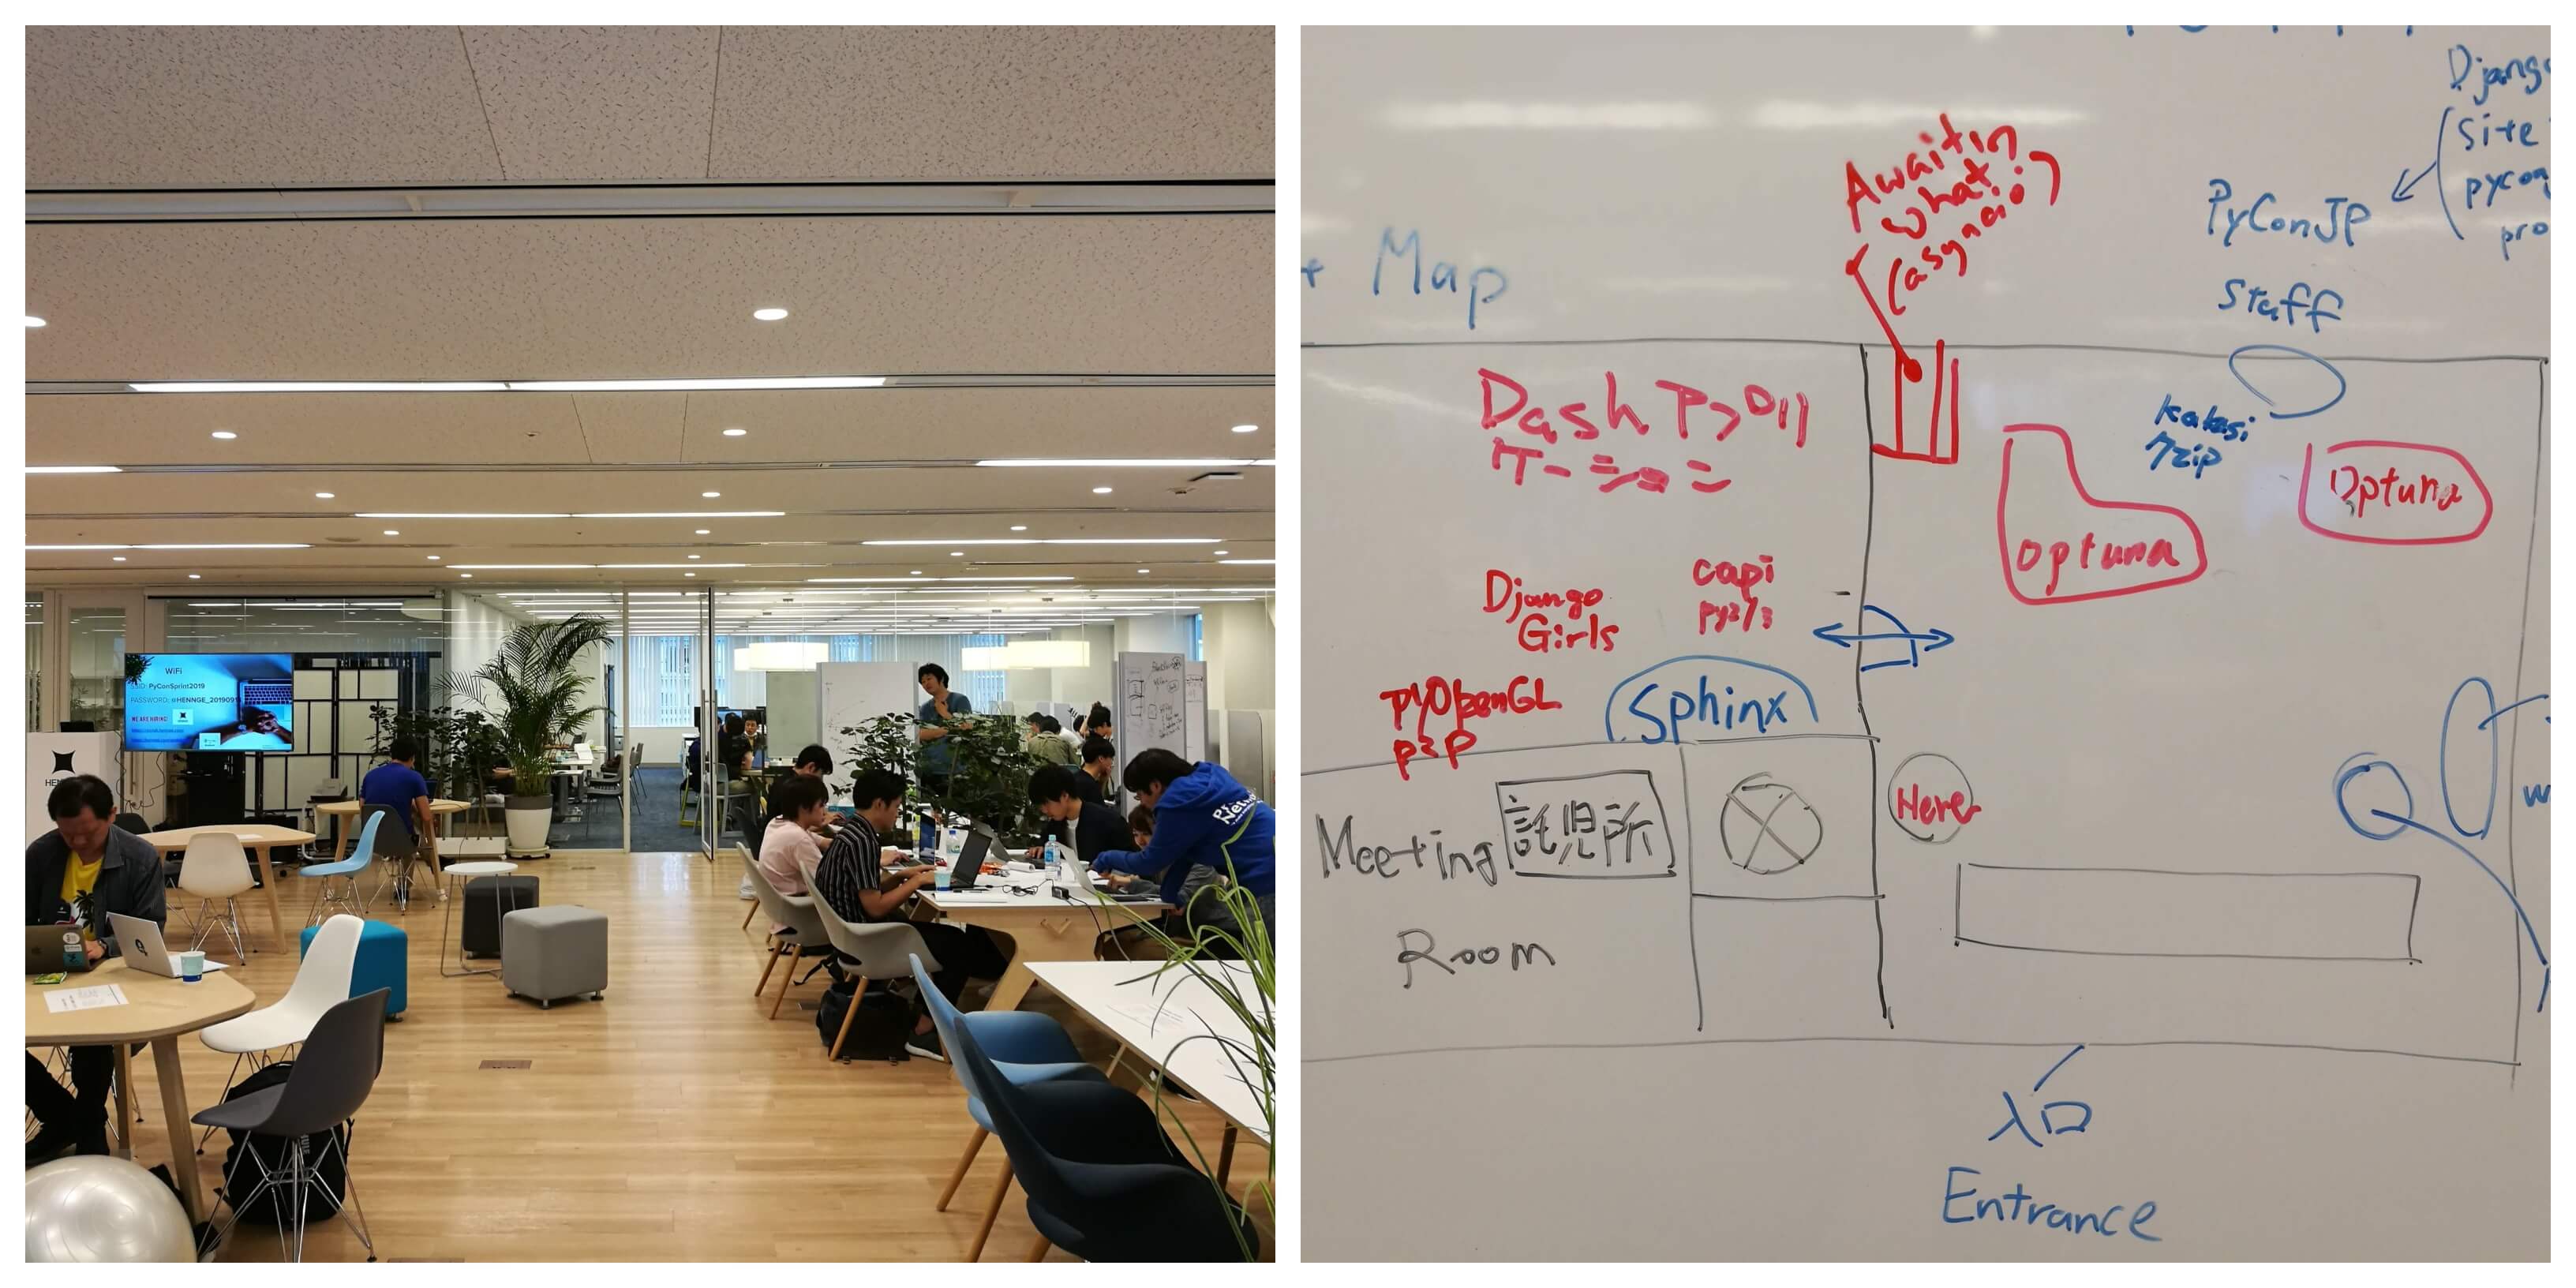 WiFi
SSID: PyConSprint2019
PASSWORD: @HENNGE_201909
WE ARE HIRING!
Map
Awaitin
what
(asyncio)
Django
site
pycon
PyConJP
pro
staff
Dash アプリ
ケーション
kakasi
7zip
optuna
Optuna
Django
Girls
capi
py2/3
PyOpenGL
p2p
Sphinx
Here
Meeting
託児所
Room
入口
Entrance